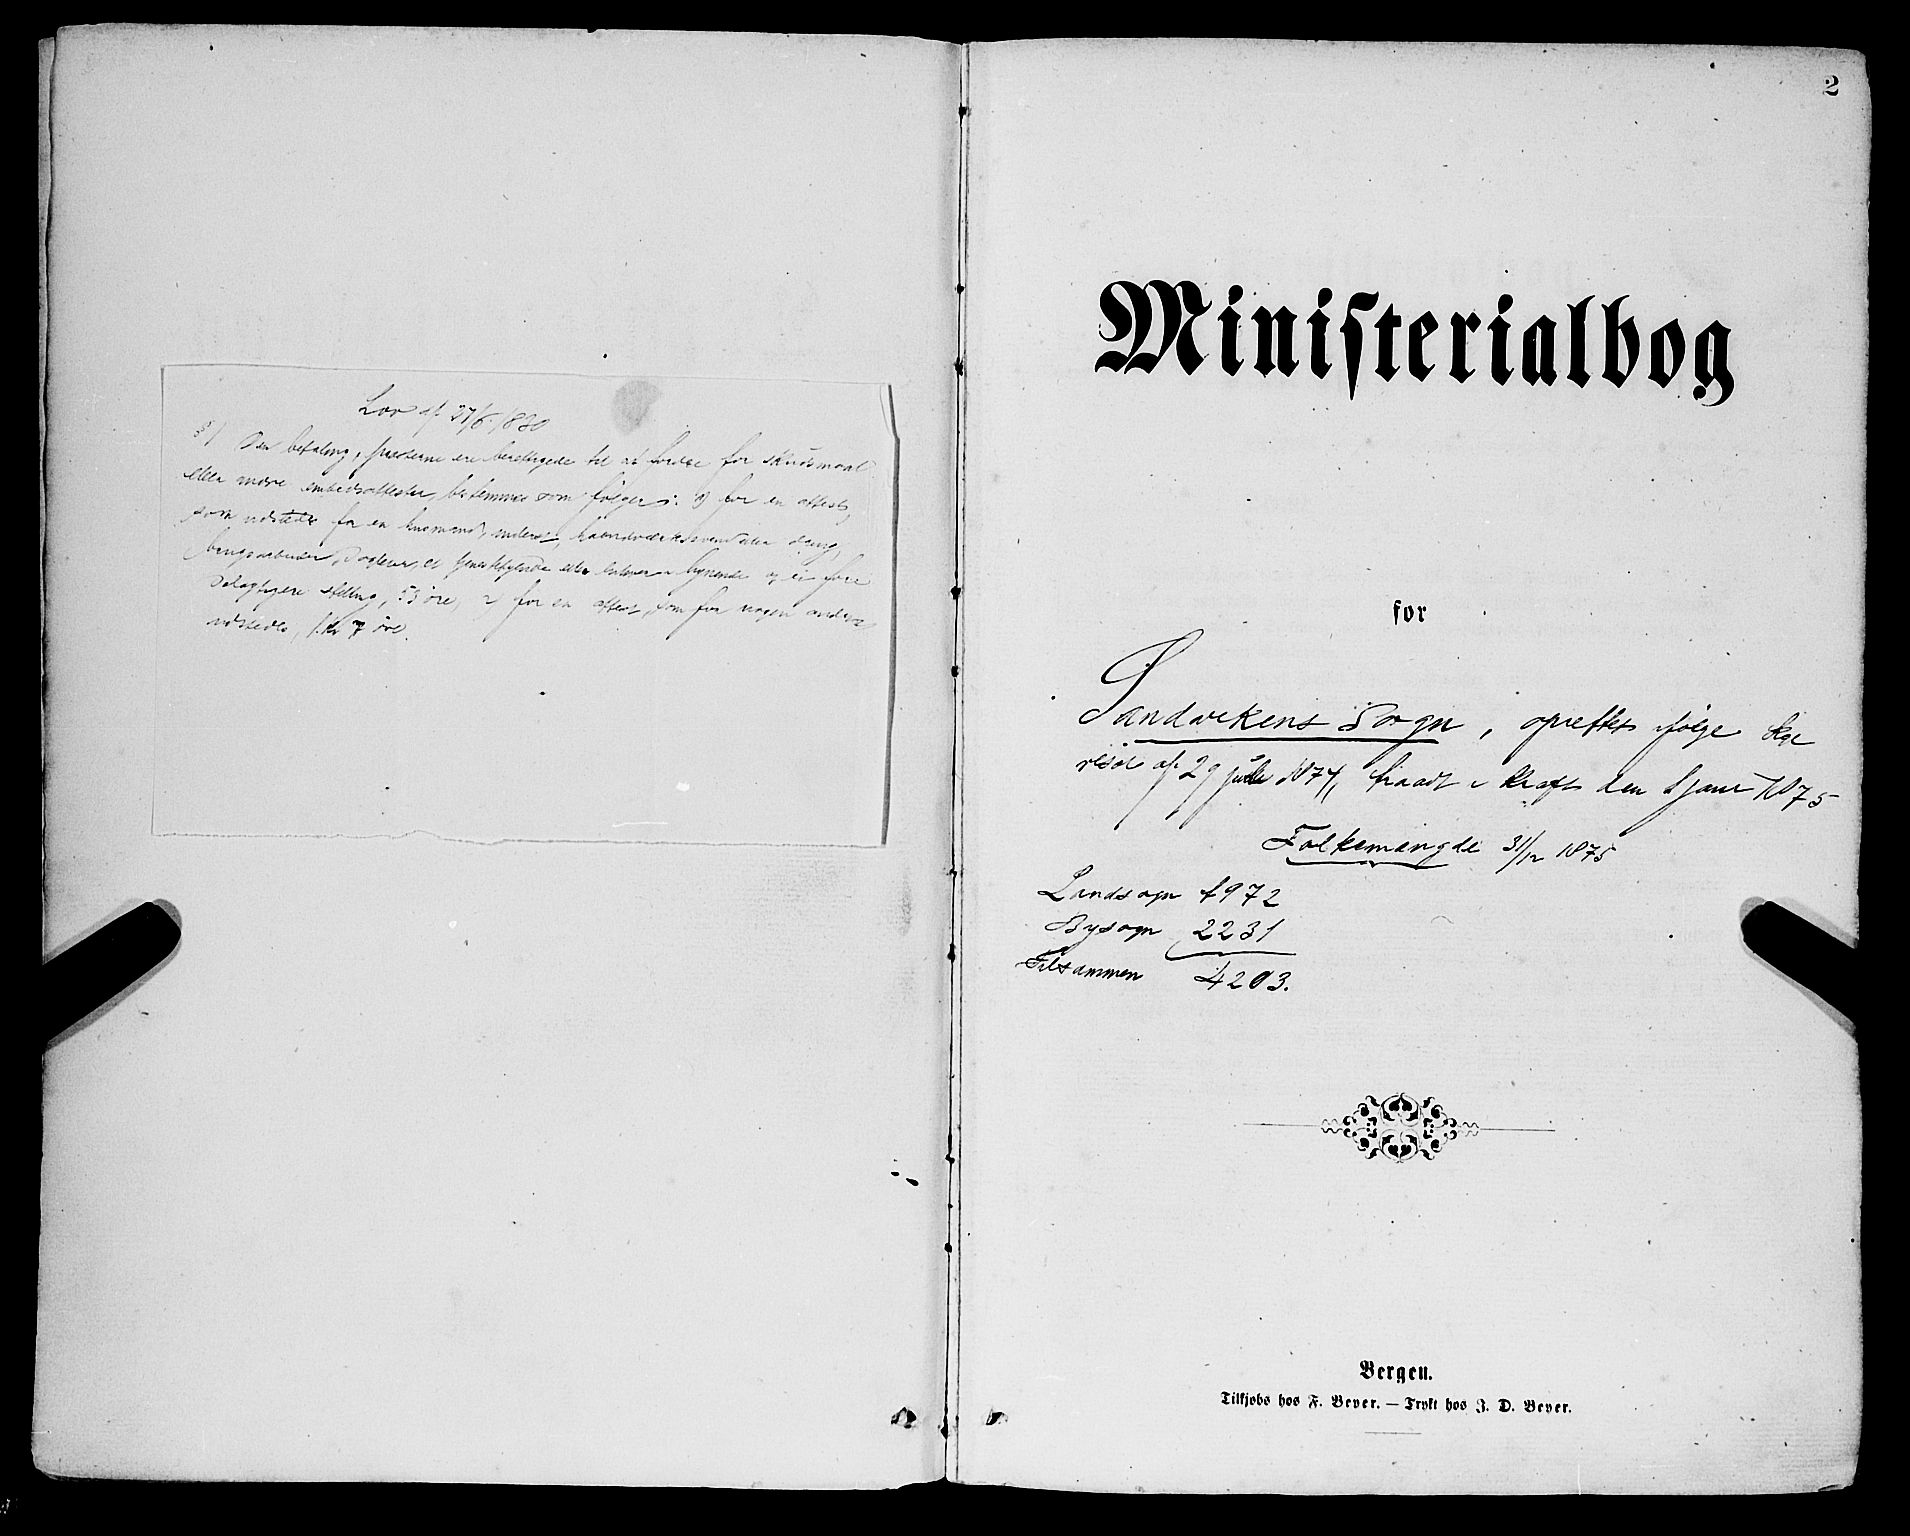 Lov af 27/6 1880
§1 Den betaling, præsterne ere berettigede til at fordre for skudsmaal
eller andre embedsattester, bestemmes som følger: 1) for en attest,
som udstedes for en husmand, inderst, haandværkssvend eller
bergsarbeider, eller og ei for-
delagtigere stilling, 53 øre, 2) for en attest, som for nogen anden
udstedes, 1 kr 7 øre.
2
Ministerialbog
for
Sandvikens Sogn, oprettet ifølge kgl
resol af 29 juli 1874, traadt i kraft den 1 janr 1875
Folkemængde 31/12 1875
Landsogn 1972
Bysogn 2231
Tilsammen 4203.
Bergen.
Tilkjøbs hos F. Beyer. — Trykt hos J. D. Beyer.